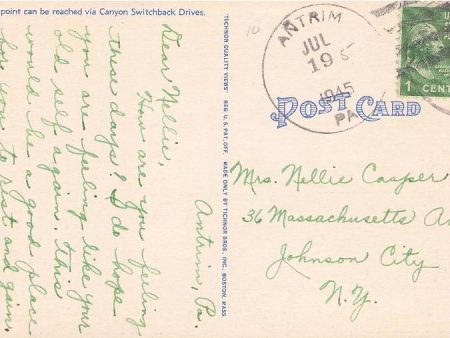 point can be reached via Canyon Switchback Drives.
Antrim, Pa.
Dear Nellie,
How are you feeling
these days? I do hope
you are feeling like your
old self again. This
would be a good place
for you to rest and gain
"TICHNOR QUALITY VIEWS" REG. U.S. PAT. OFF. MADE ONLY BY TICHNOR BROS., INC., BOSTON, MASS.
10
ANTRIM
JUL
19
1945
PA.
POST CARD
1 CENT
Mrs. Nellie Casper
36 Massachusetts
Johnson City
N.Y.